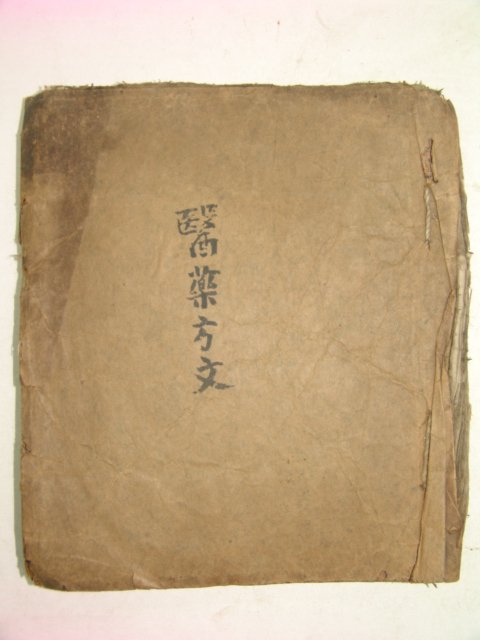 醫藥方文